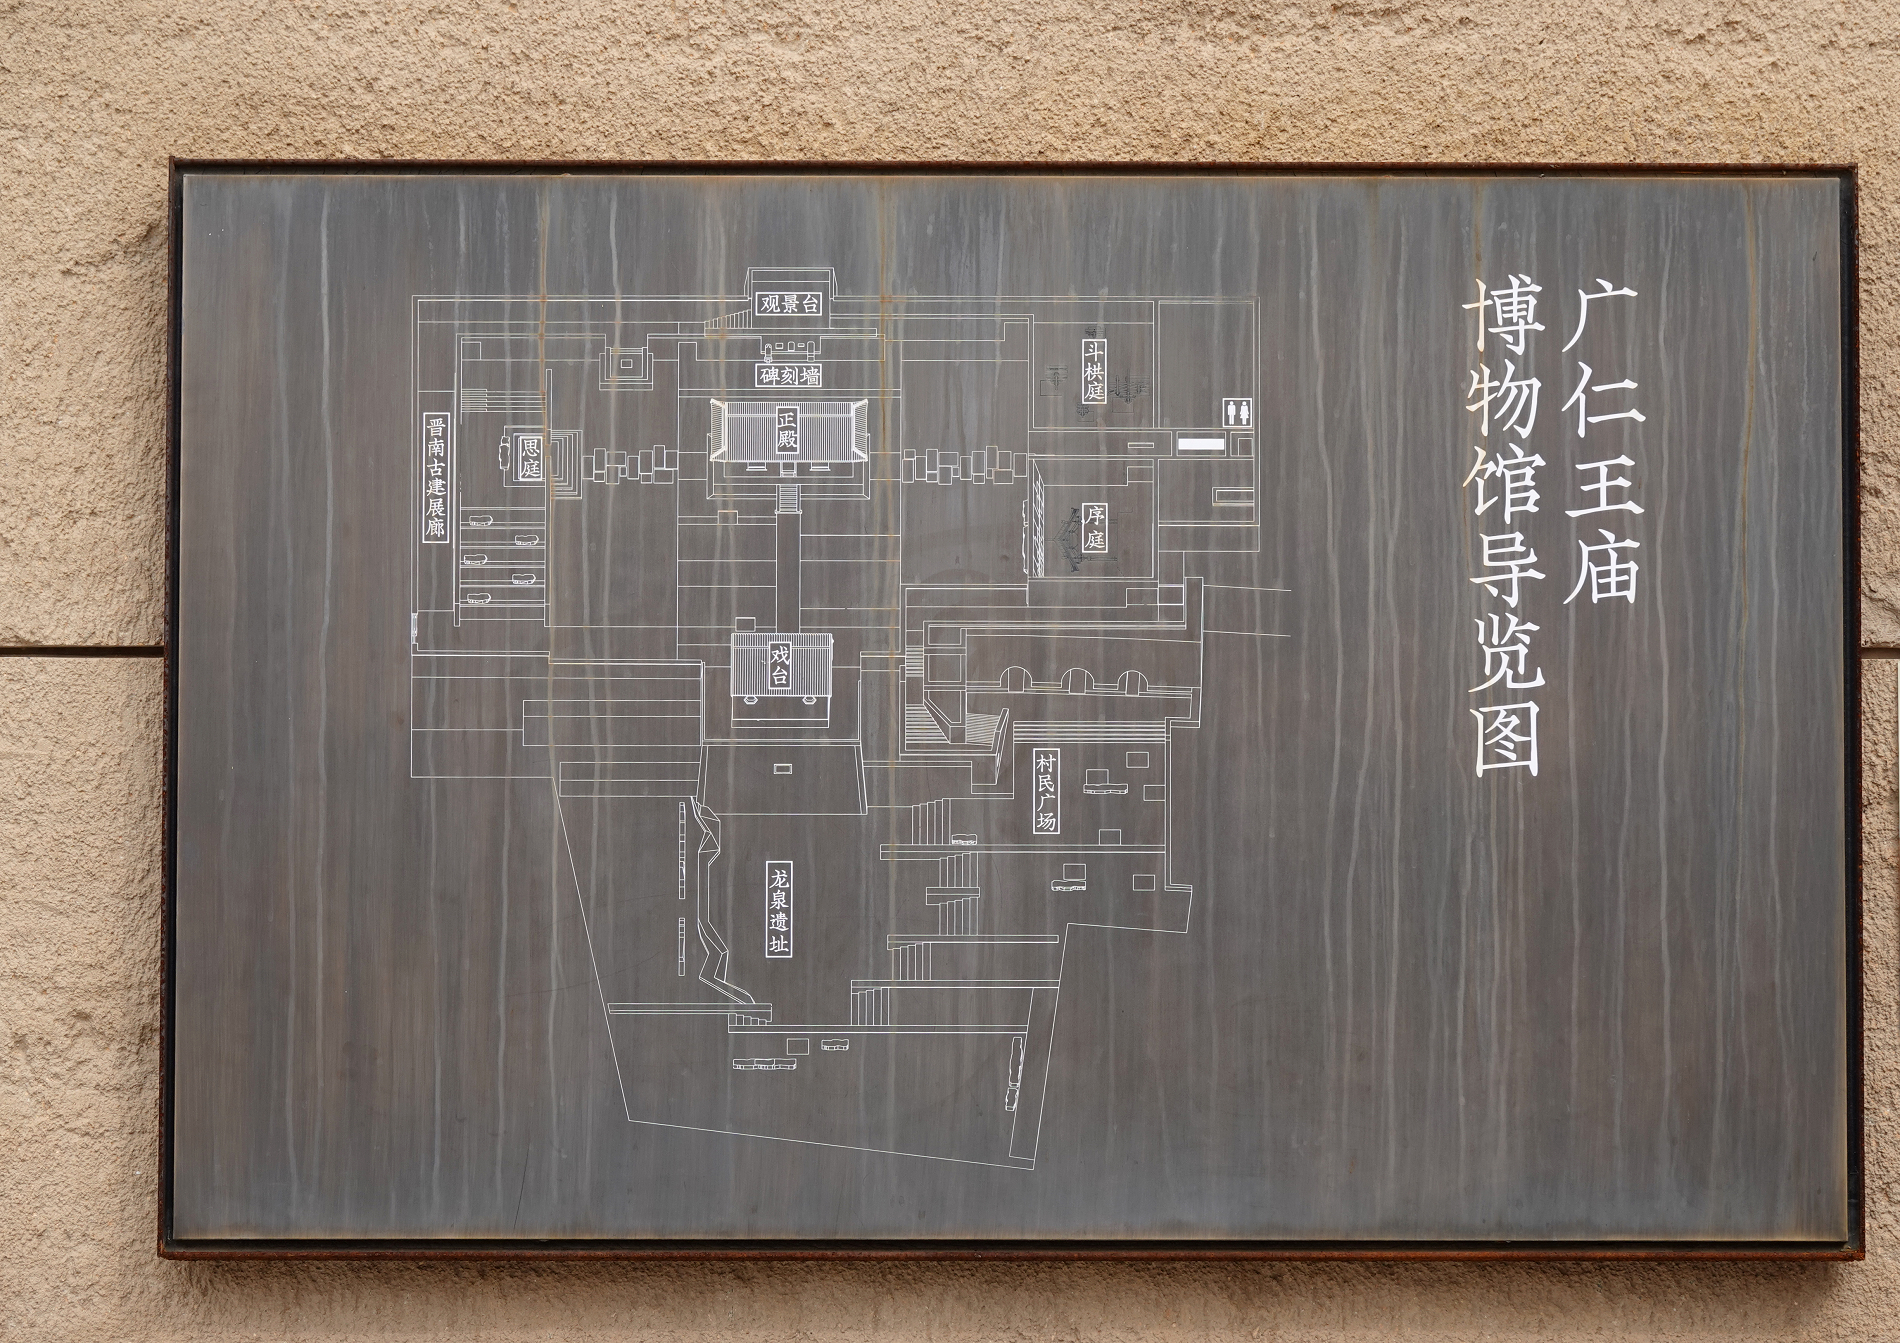 广仁王庙
博物馆导览图
观景台
碑刻墙
斗栱庭
正殿
晋南古建展廊
思庭
序庭
戏台
村民广场
龙泉遗址